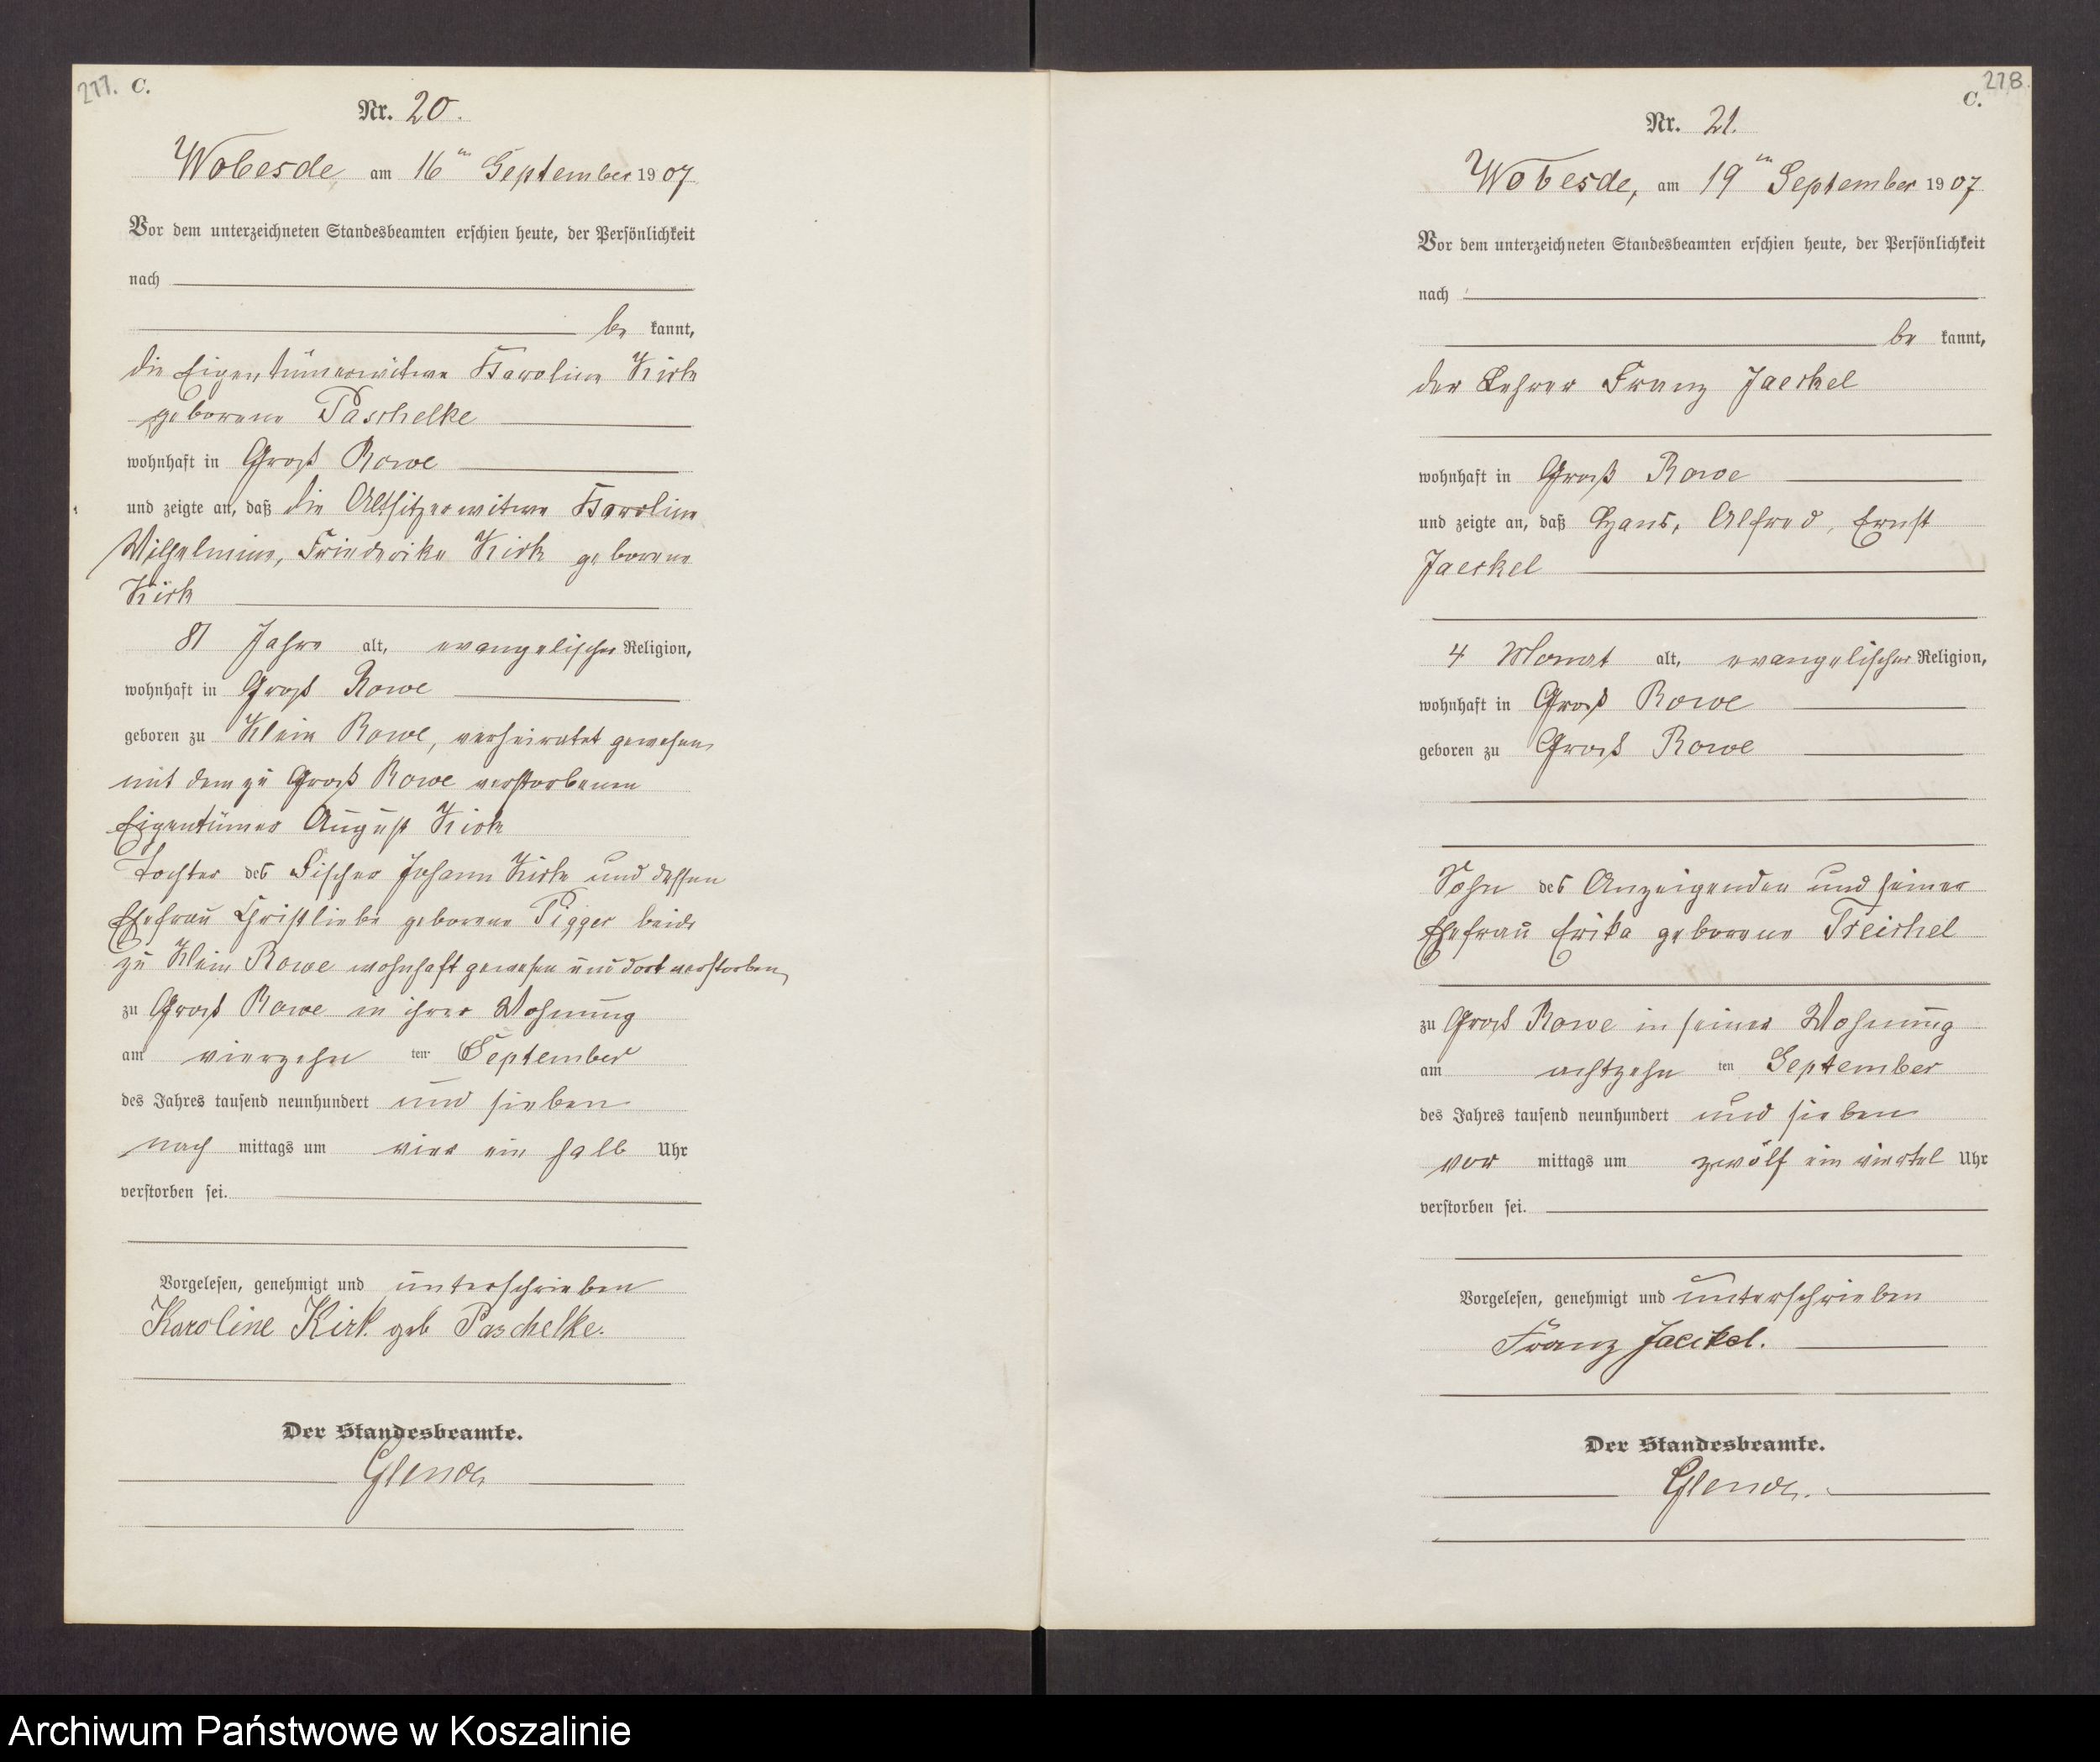 277. C.
Nr. 20.
Wobesde, am 16ten September 1907
Vor dem unterzeichneten Standesbeamten erschien heute, der Persönlichkeit
nach
be kannt,
die Eigentümerwitwe Karoline Kirk
geborene Paschelke
wohnhaft in Groß Rowe
und zeigte an, daß die Altsitzerwitwe Karoline
Wilhelmine, Friederike Kirk geborene
Kirk
81 Jahre alt, evangelischer Religion,
wohnhaft in Groß Rowe
geboren zu Klein Rowe, verheiratet gewesen
mit dem zu Groß Rowe verstorbenen
Eigentümer August Kirk
Tochter des Fischer Johann Kirk und dessen
Ehefrau Christliebe geborene Pigger beide
zu Klein Rowe wohnhaft gewesen und dort verstorben,
zu Groß Rowe in ihrer Wohnung
am vierzehn ten September
des Jahres tausend neunhundert und sieben
nach mittags um vier ein halb Uhr
verstorben sei.
Vorgelesen, genehmigt und unterschrieben
Karoline Kirk geb Paschelke.
Der Standesbeamte.
278.
C.
Nr. 21.
Wobesde, am 19ten September 1907
Vor dem unterzeichneten Standesbeamten erschien heute, der Persönlichkeit
nach
be kannt,
der Lehrer Franz Jaeckel
wohnhaft in Groß Rowe
und zeigte an, daß Hans, Alfred, Ernst
Jaeckel
4 Monat alt, evangelischer Religion,
wohnhaft in Groß Rowe
geboren zu Groß Rowe
Sohn des Anzeigenden und seiner
Ehefrau Erika geborene Treichel
zu Groß Rowe in seiner Wohnung
am achtzehn ten September
des Jahres tausend neunhundert und sieben
vor mittags um zwölf ein viertel Uhr
verstorben sei.
Vorgelesen, genehmigt und unterschrieben
Franz Jaeckel.
Der Standesbeamte.
Archiwum Państwowe w Koszalinie